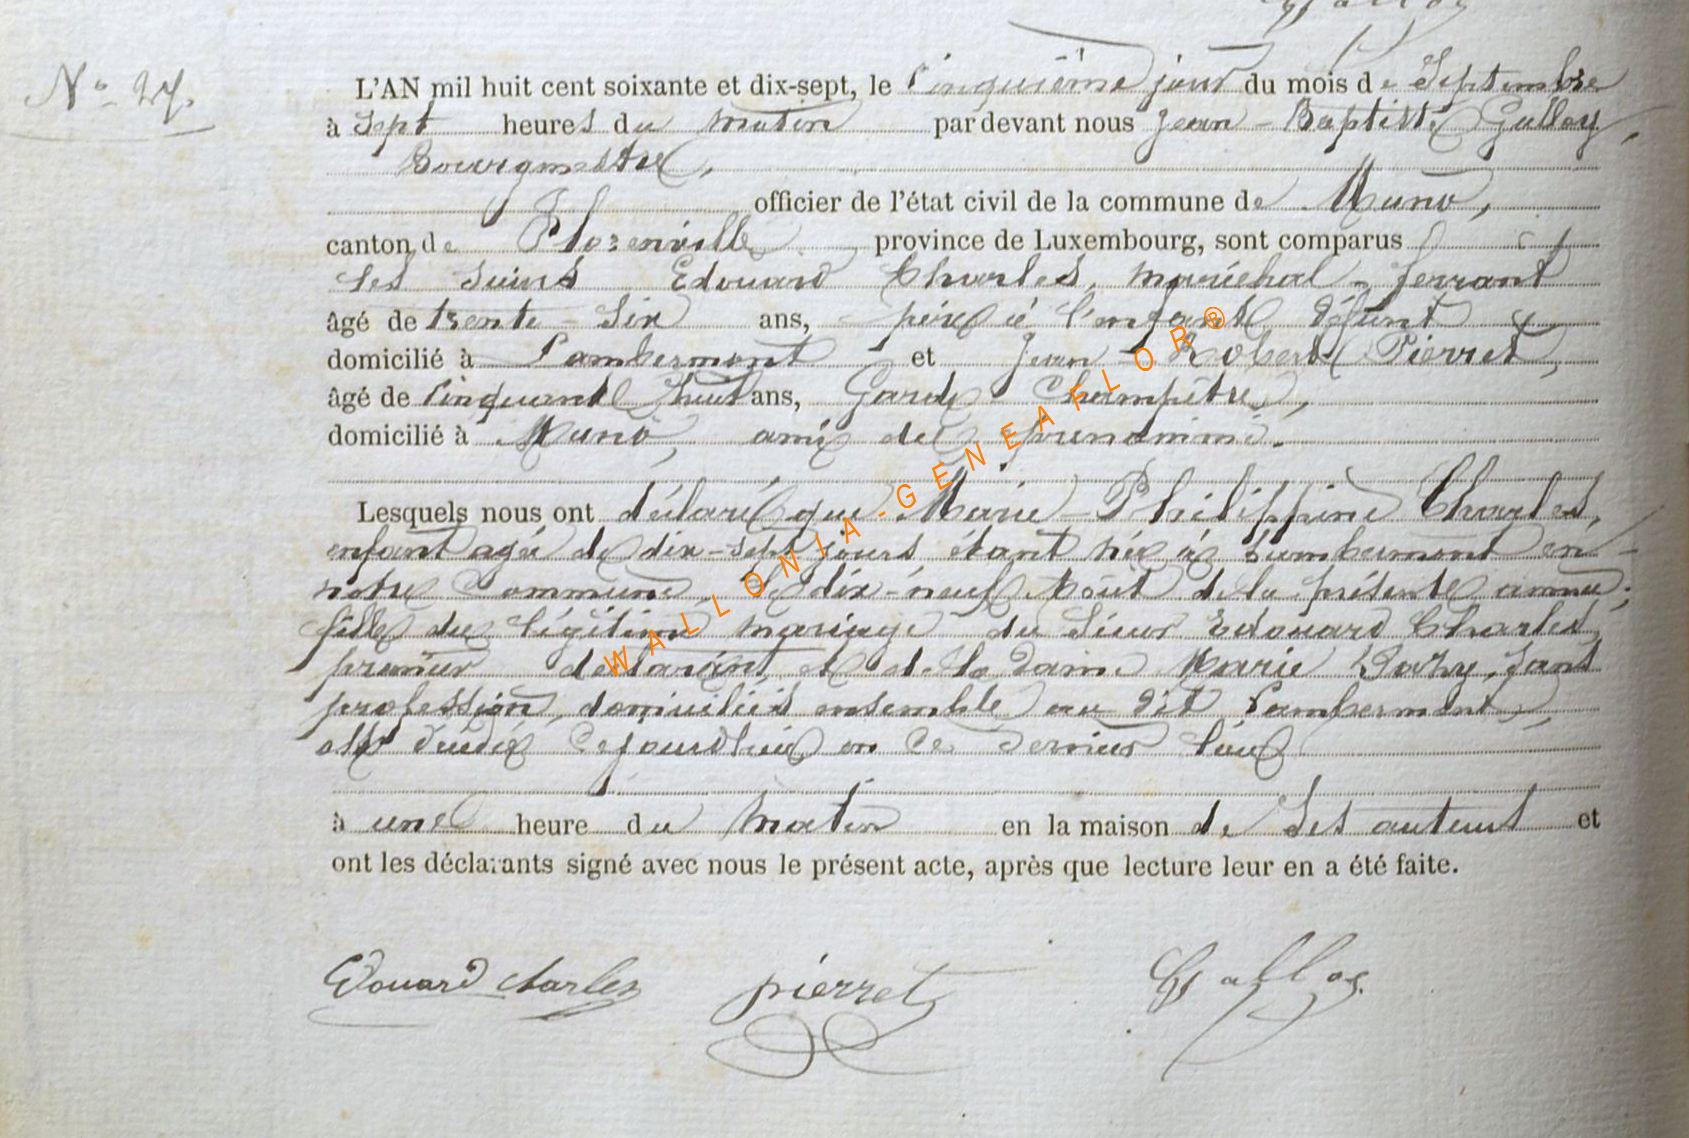 N° 27.
L'AN mil huit cent soixante et dix-sept, le cinquième jour du mois de Septembre
à Sept heures du matin par devant nous Jean-Baptiste Galloy,
Bourgmestre,
officier de l'état civil de la commune de Muno,
canton de Florenville province de Luxembourg, sont comparus
les Edouard Charles, maréchal-ferrant
âgé de trente-six ans, père à l'enfant défunt
domicilié à Lambermont et Jean-Robert Pierret,
âgé de cinquante huit ans, Garde Champêtre,
domicilié à Muno, ami du prénommé.
Lesquels nous ont déclaré que Marie-Philippine Charles,
enfant agé de dix-sept jours étant née à Lambermont en
notre Commune, le dix-neuf Août de la présente année;
fille du légitime mariage du Sieur Edouard Charles,
premier déclarant, et de la Dame Marie sans
profession, domiciliés ensemble au dit Lambermont,
est décédée cejourdhui en ce dernier lieu
à une heure du matin en la maison de ses auteurs et
ont les déclarants signé avec nous le présent acte, après que lecture leur en a été faite.
Edouard charles pierret Galloy
WALLONIA-GENEAFLOR®